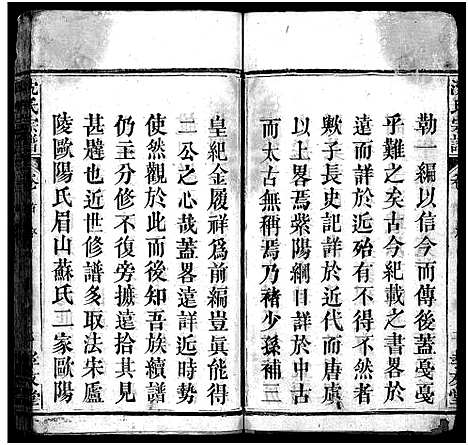 沈氏宗譜
勒一編以信今而傳後蓋戞戞
乎難之矣古今紀載之書畧於
遠而詳於近殆有不期然者
歟子長史記詳於近代而唐虞
以上畧焉紫陽綱目詳於中古
而太古無稱焉乃褚少孫補三
皇紀金履祥爲前編豈眞能得
二公之心哉蓋畧遠詳近時勢
使然觀於此可知吾族續譜
仍主分修不復旁摭遠引其見
甚韙也近世修譜多取法朱廬
陵歐陽氏眉山蘇氏二家歐陽
沈氏宗譜